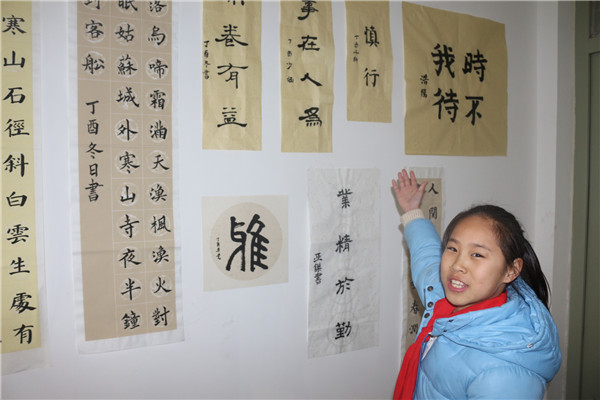 寒山石徑斜白雲生處有
落烏啼霜滿天漁楓漁火對
眠姑蘇城外寒山寺夜半鐘
到客船
丁酉冬日書
卷有益
丁酉冬書
事在人爲
慎行
時不
我待
雅
業精於勤
人間